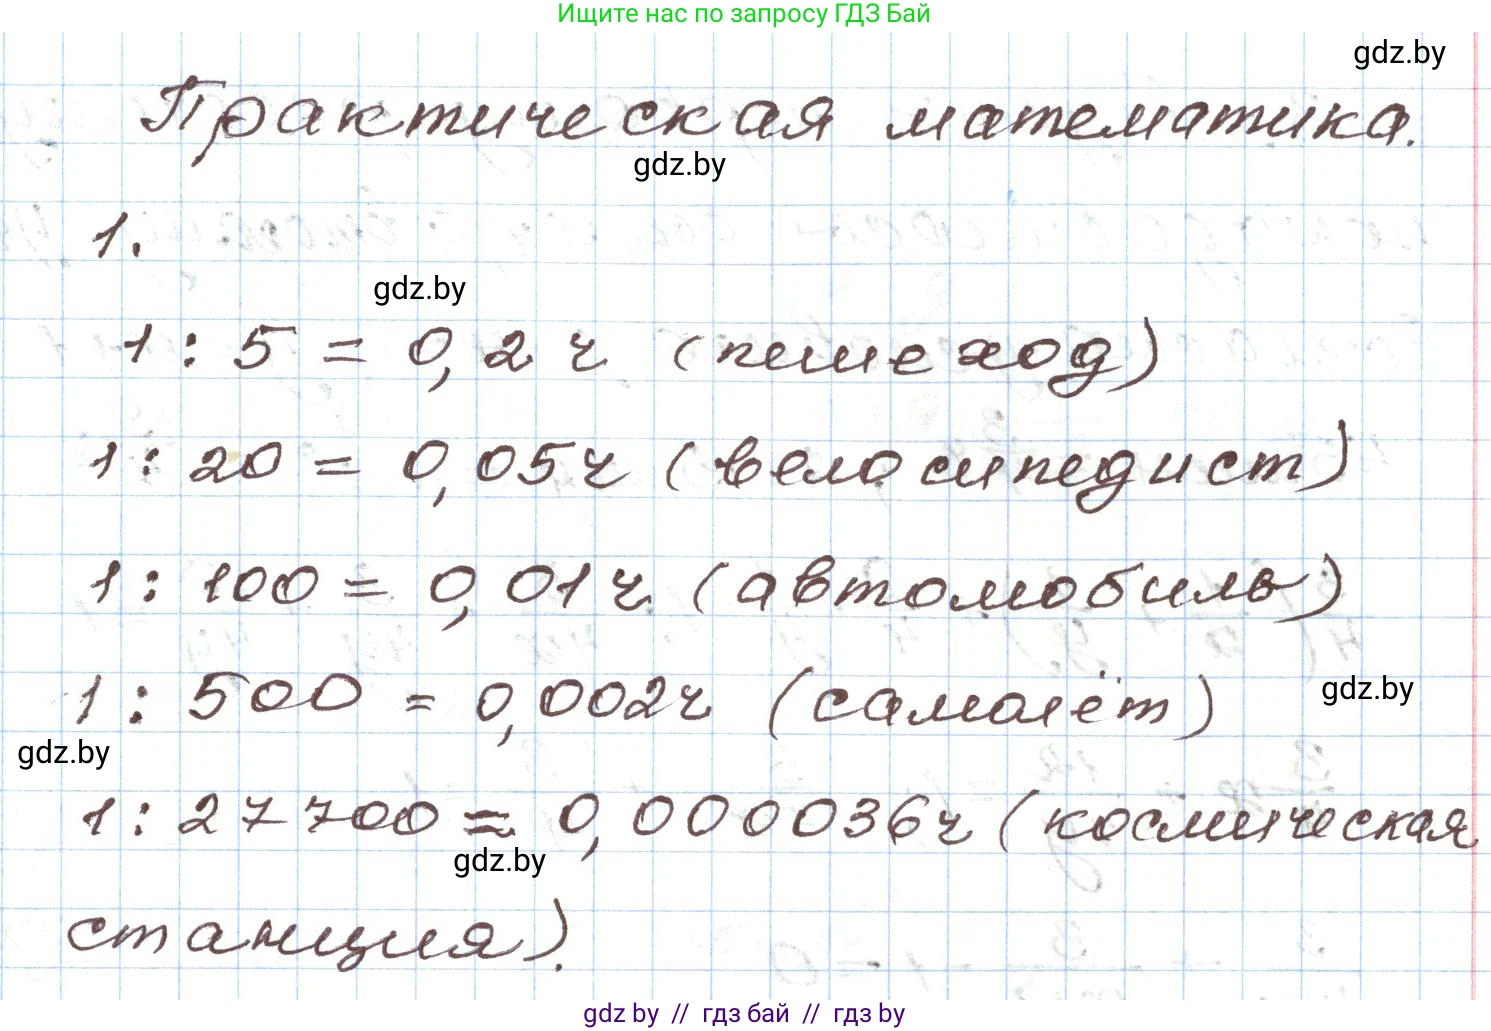 Ищите нас по запросу ГДЗ Бай
gdz.by
Практическая математика.
gdz.by
1.
gdz.by
1 : 5 = 0,2 ч (пешеход)
1 : 20 = 0,05ч (велосипедист)
1 : 100 = 0,01ч (автомобиль)
1 : 500 = 0,002ч (самолёт)
gdz.by
gdz.by
1 : 27700 ≈ 0,000036ч (космическая
gdz.by
станция).
gdz.by // гдз бай // гдз by